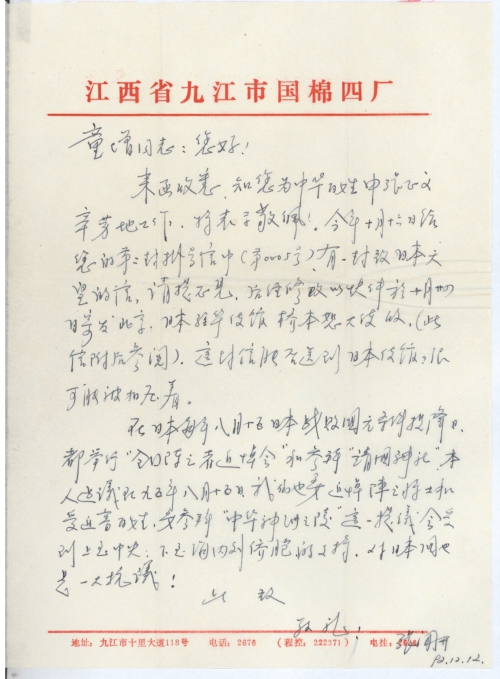 江西省九江市国棉四厂
童增同志：您好！
来函收悉，知您为中华百姓申张正义
辛劳地工作，特表示敬佩！今年十月十六日给
您的第二封挂号信中（第0005号）有一封致日本天
皇的信，请提意见，后经修改以快件于十月廿四
日寄发北京，日本驻华使馆 桥本恕大使收，（此
信附后参阅）。这封信能否送到日本使馆？很
可能被扣压着。
在日本每年八月十五日本战败国无条件投降日
都举行“全国阵亡者追悼会”和参拜“靖国神社”本
人建议在九五年八月十五日我们也举追悼阵亡将士和
受迫害百姓，并参拜“中华神州之陵”这一提议会受
到上至中央，下至海内外侨胞的支持，对日本国也
是一大抗议！
此致
敬礼！
地址：九江市十里大道118号 电话：2676 （程控：222371） 电挂：
92.12.12.